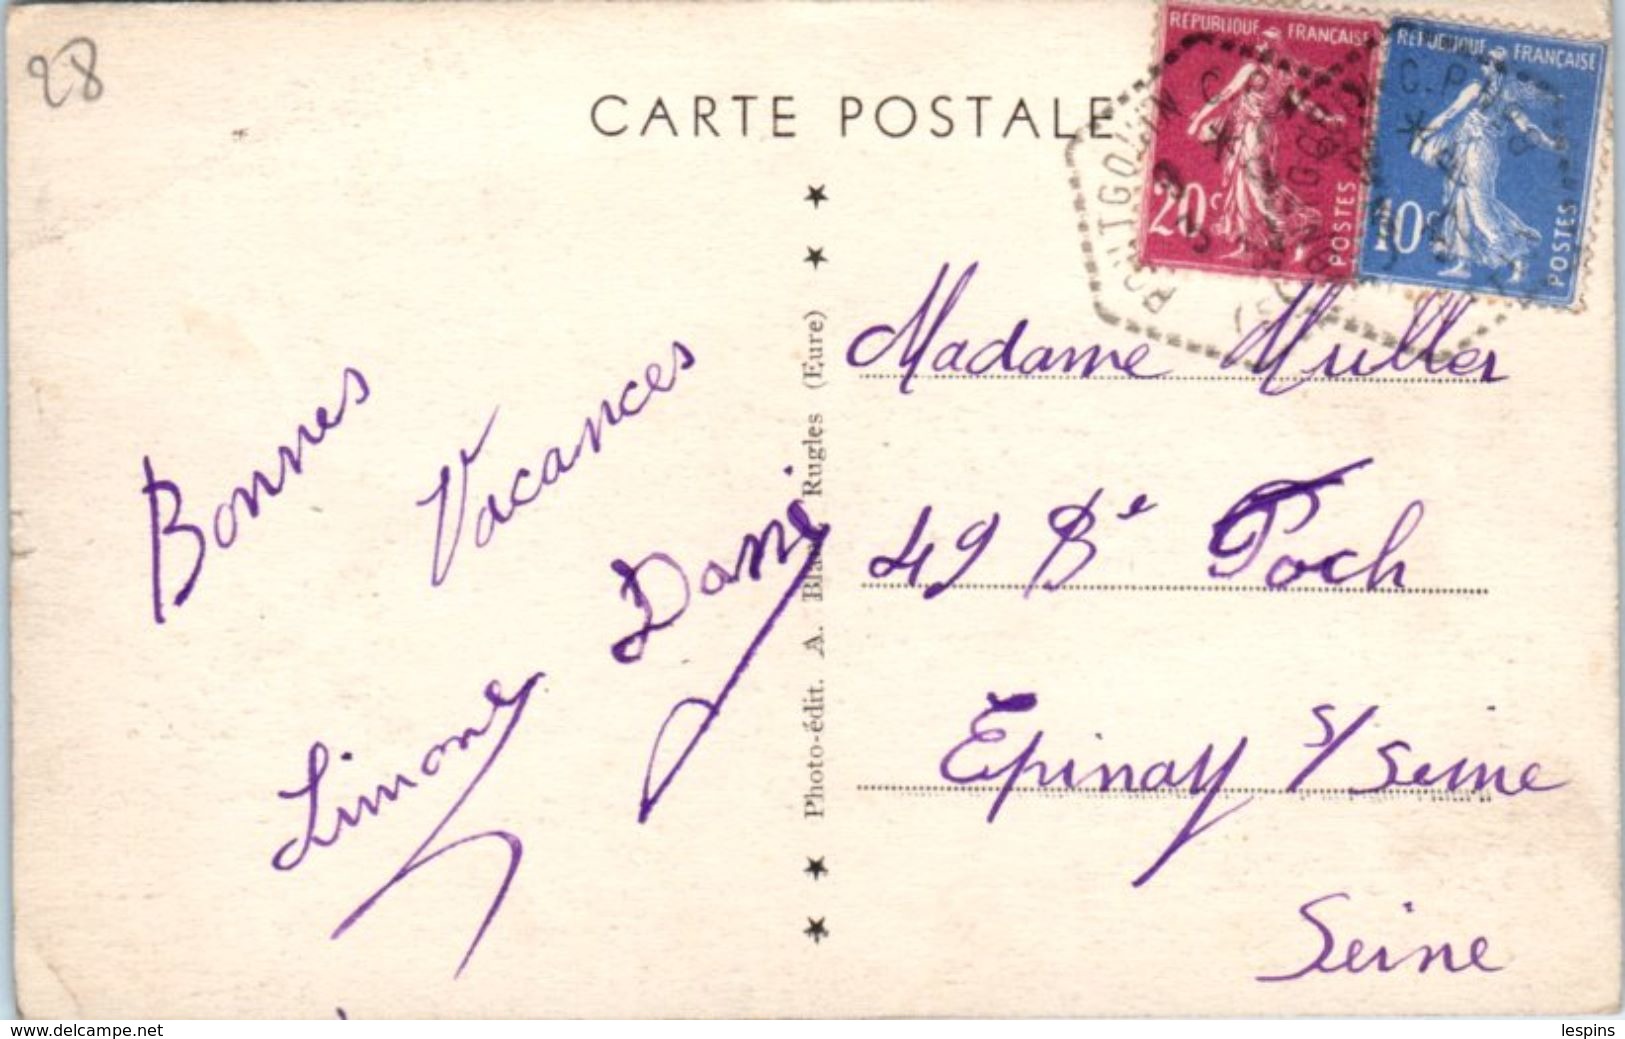 28
CARTE POSTALE
REPUBLIQUE FRANÇAISE
20c
POSTES
REPUBLIQUE FRANÇAISE
10c
POSTES
PONTGOUIN
Bonnes Vacances
Simone Dany
Photo-édit. A. Rugles (Eure)
Madame Muller
49 Bd Foch
Epinay s/Seine
Seine
www.delcampe.net
lespins